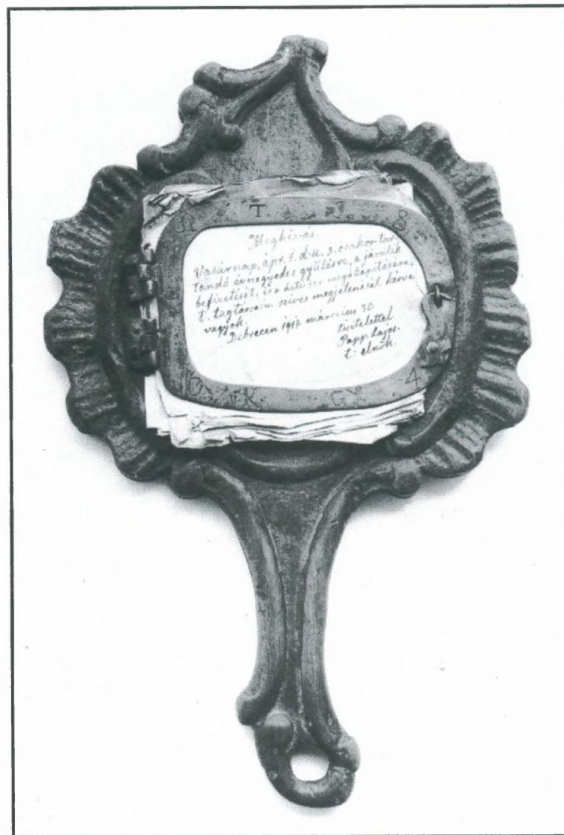 T S
Meghívás.
Vasárnap, ápr. 1. d.u. 3. órakor tar
tandó évnegyedes gyűlésre, a járulék
befizetését, és a
t. tagtársaim szives megjelenését kérve
vagyok.
Debrecen 1917. március 30.
tisztelettel
Papp Lajos.
t. elnök.
K G 4